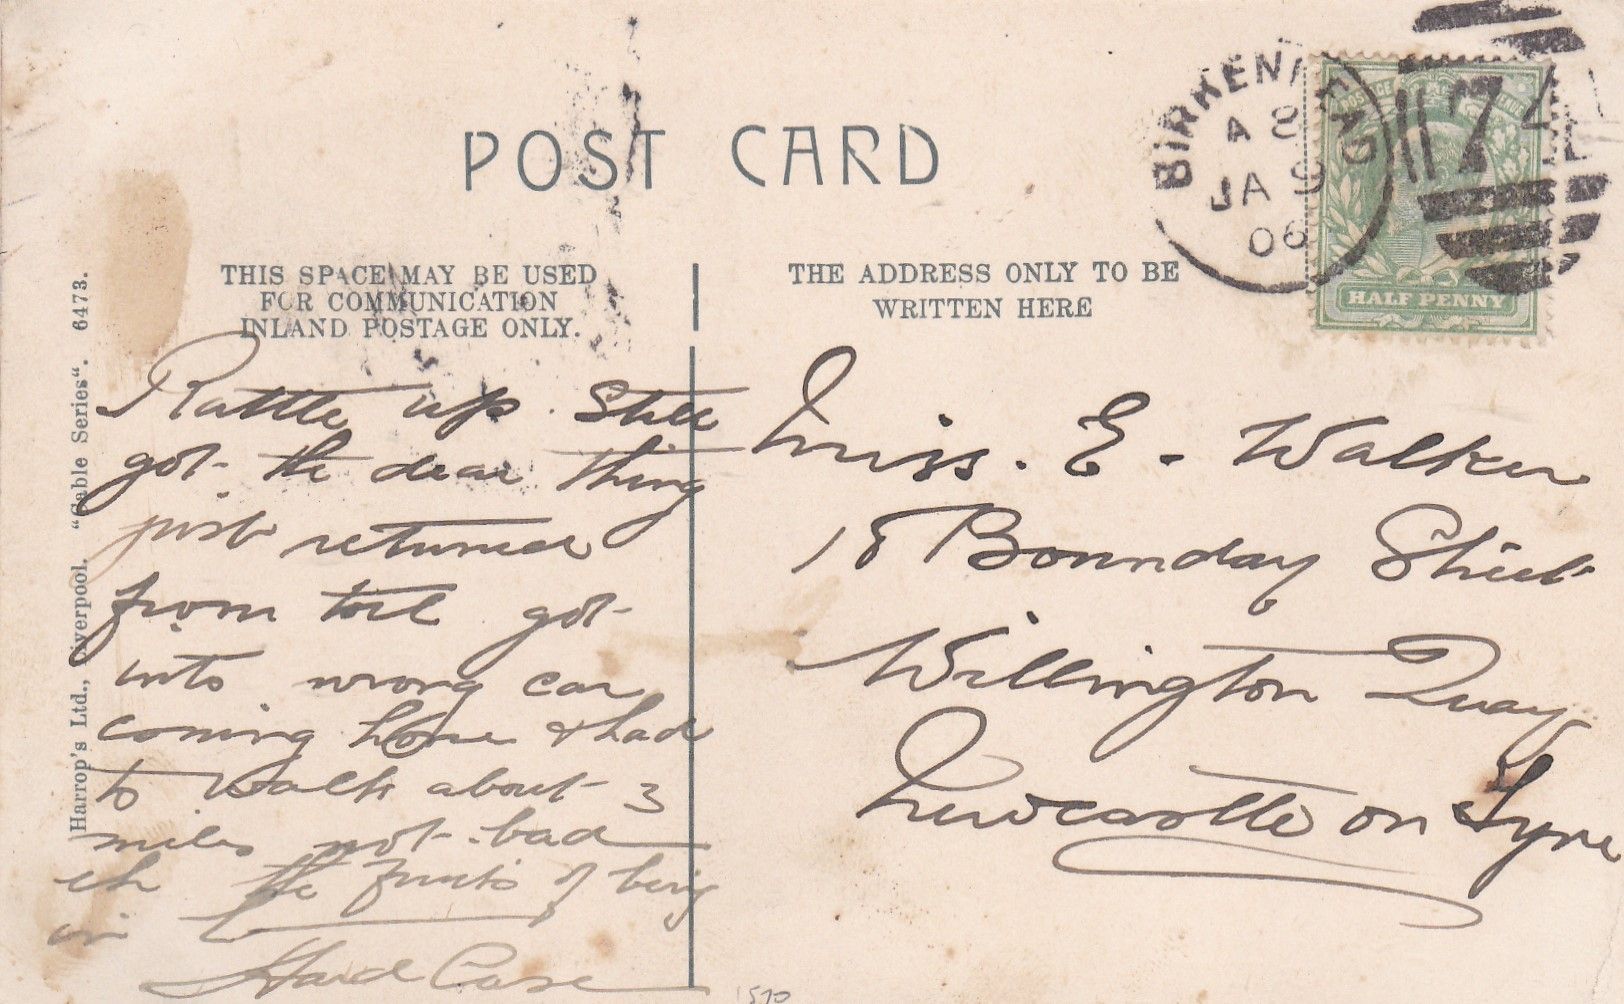 POST CARD
BIRKENHEAD
A 8
JA 9
06
HALF PENNY
THIS SPACE MAY BE USED
FOR COMMUNICATION
INLAND POSTAGE ONLY.
THE ADDRESS ONLY TO BE
WRITTEN HERE
Harrop's Ltd., Liverpool. "Cable Series". 6473.
Rattle up. Still
got the dear thing
just returned
from toil got
into wrong car
coming home & had
to walk about 3
miles not bad
eh the fruits of being
in L
Hard Case
Miss. E. Walker
18 Bounday Street
Willington Quay
Newcastle on Tyne